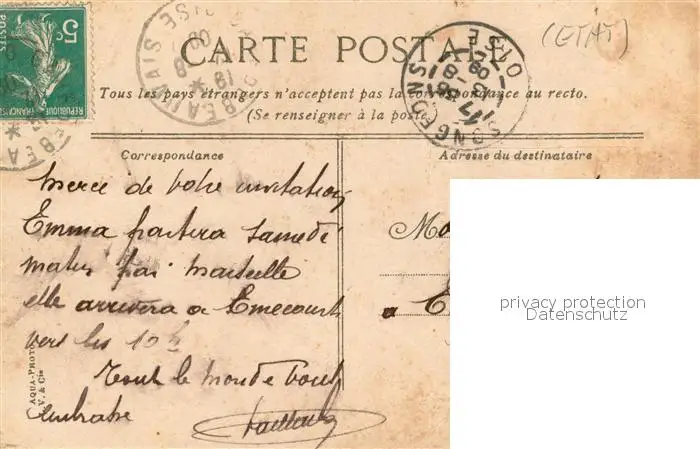 5c
POSTES
REPUBLIQUE FRANÇAISE
BEAUVAIS OISE
SONGEONS OISE
CARTE POSTALE
(ETAT)
Tous les pays étrangers n'acceptent pas la correspondance au recto.
(Se renseigner à la poste)
Correspondance
Adresse du destinataire
Merci de votre invitation
Emma partira samedi
matin par Marseille
elle arrivera à Ernecourt
vers les 10 h
Tout le monde vous
embrasse
AQUA-PHOTO
V. & Cie
M
a E
privacy protection
Datenschutz